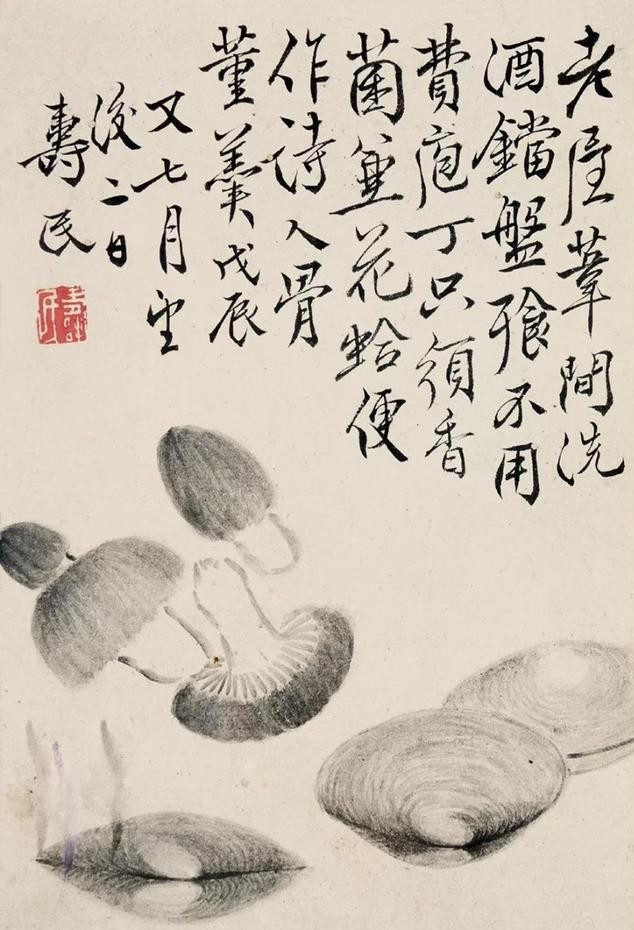 老屋葦間洗
酒鐺盤飱不用
費庖丁只須香
菌兼花蛤便
作詩人骨
董羹戊辰
又七月望
後二日
壽民
壽民